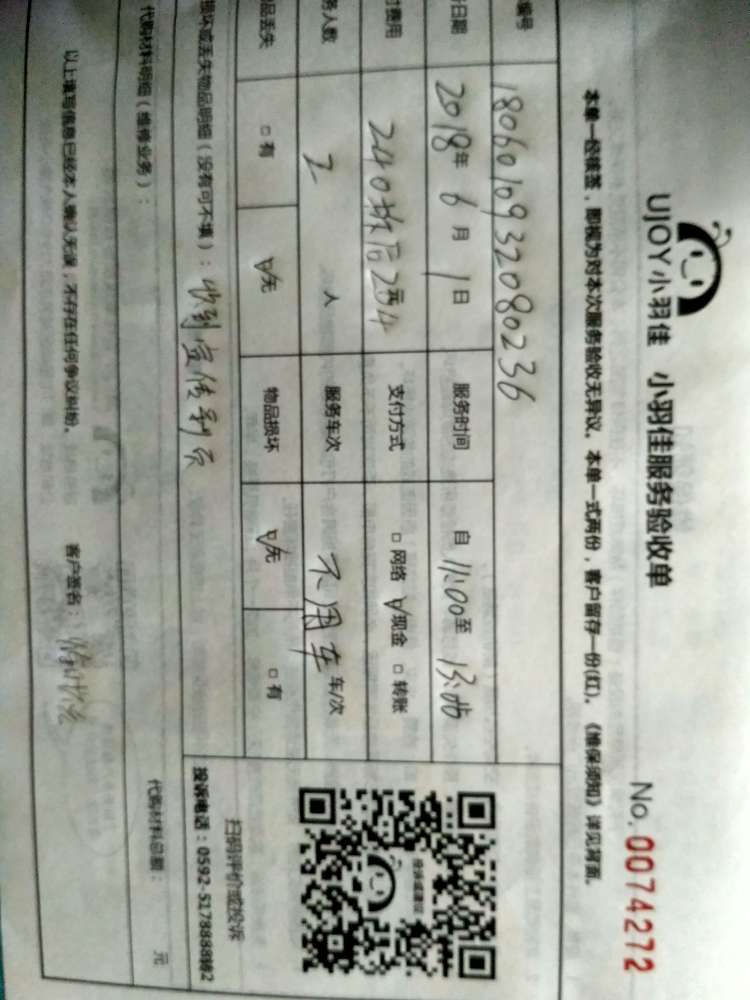 UJOY小羽佳 小羽佳服务验收单
No. 0074272
本单一经核签，即视为对本次服务验收无异议。本单一式两份，客户留存一份(红)。《维保须知》详见背面。
编号 1806010932080236
日期 2018年 6月 1日 服务时间 自 11:00至
付费用 240 204元 支付方式 □ 网络 ☑现金 □ 转账
务人数 2 人 服务车次 不用车 车/次
品丢失 □ 有 ☑无 物品损坏 ☑无 □ 有
损坏或丢失物品明细（没有可不填）：收到宣传彩页
扫码评价或投诉
投诉电话：0592-5178888转2
代购材料明细（维修业务）： 代购材料总额： 元
以上填写信息已经本人确认无误，不存在任何争议纠纷。 客户签名：